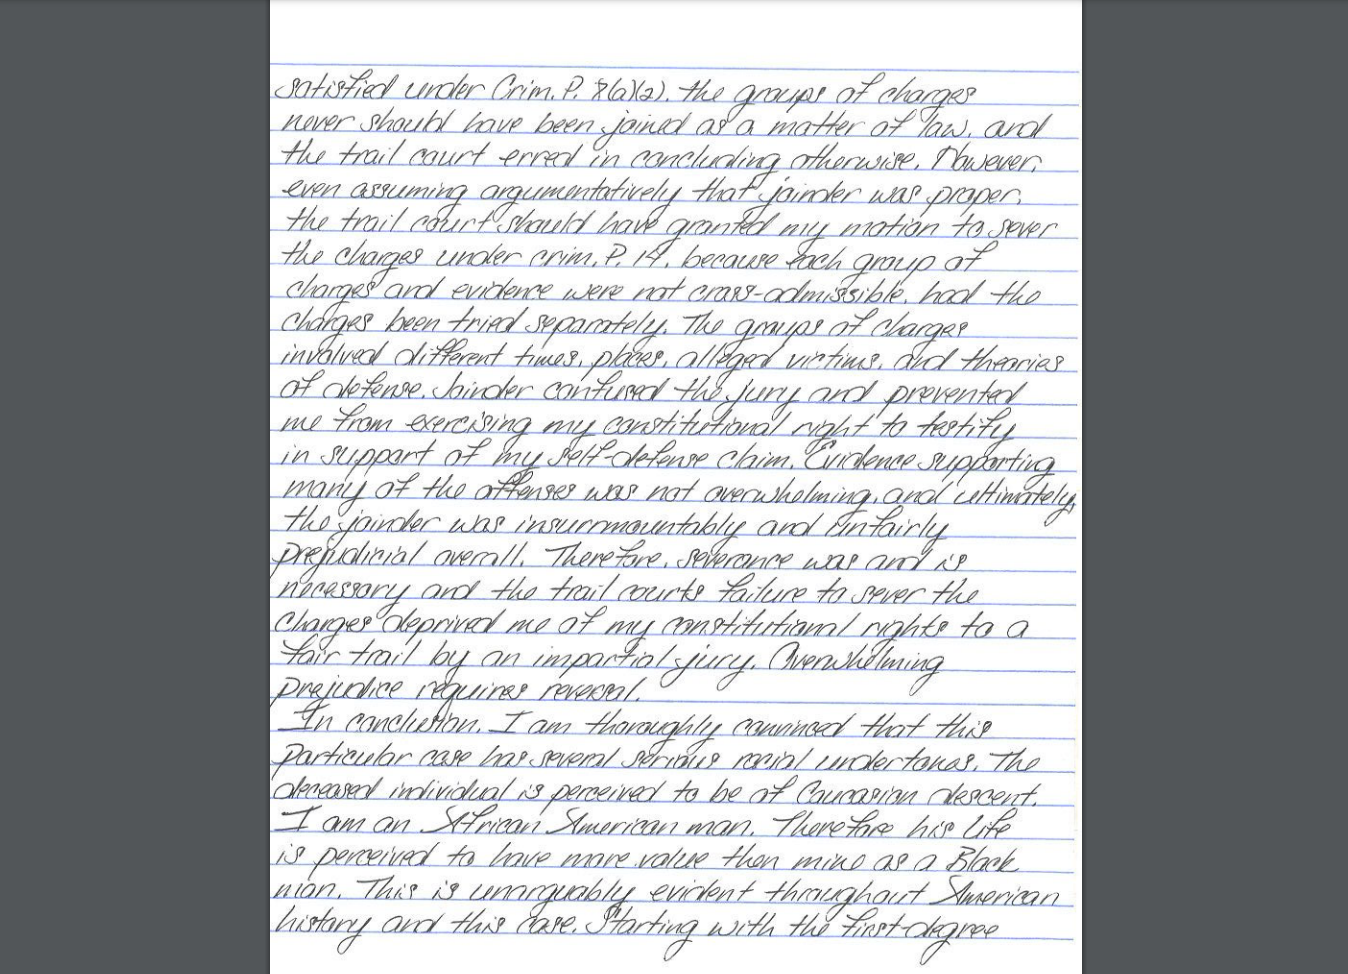 satisfied under Crim. P. 8(a)(2). the groups of charges
never should have been joined as a matter of law. and
the trail court erred in concluding otherwise. However,
even assuming argumentatively that joinder was proper,
the trail court should have granted my motion to sever
the charges under crim. P. 14. because each group of
charges and evidence were not cross-admissible. had the
charges been tried separately. The groups of charges
involved different times, places, alleged victims, and theories
of defense. Joinder confused the jury and prevented
me from exercising my constitutional right to testify
in support of my self-defense claim. Evidence supporting
many of the offenses was not overwhelming, and ultimately,
the joinder was insurmountably and unfairly
prejudicial overall. Therefore, severance was and is
necessary and the trail courts failure to sever the
charges deprived me of my constitutional rights to a
fair trail by an impartial jury. Overwhelming
prejudice requires reversal.
In conclusion, I am thoroughly convinced that this
particular case has several serious racial undertones. The
deceased individual is perceived to be of Caucasian descent.
I am an African American man. Therefore his life
is perceived to have more value then mine as a Black
man. This is unarguably evident throughout American
history and this case. Starting with the first-degree